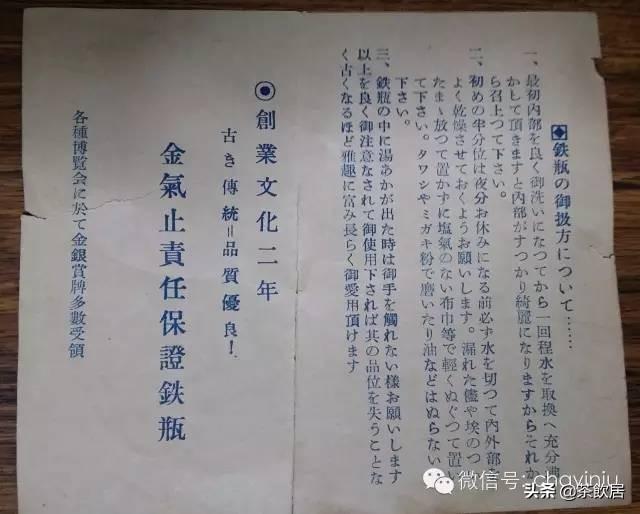 ◆鉄瓶の御扱方について……
一、最初内部を良く御洗いになつてから一回程水を取換へ充分沸
かして頂きますと内部がすつかり綺麗になりますからそれか
ら召上つて下さい。
二、初めの半分位は夜分お休みになる前必ず水を切つて内外部を
よく乾燥させておくようお願いします。漏れた儘や埃のつい
たまゝ放つて置かずに塩氣のない布巾等で軽くぬぐつて置い
て下さい。タワシやミガキ粉で磨いたり油などはぬらない
下さい。
三、鉄瓶の中に湯あかが出た時は御手を觸れない様お願いします
以上を良く御注意なされて御使用下されば其の品位を失うことな
く古くなるほど雅趣に富み長らく御愛用頂けます
◉創業文化二年
古き傳統＝品質優良！
金氣止責任保證鉄瓶
各種博覧会に於て金銀賞牌多數受領
微信号: chayinju
头条 @茶飲居